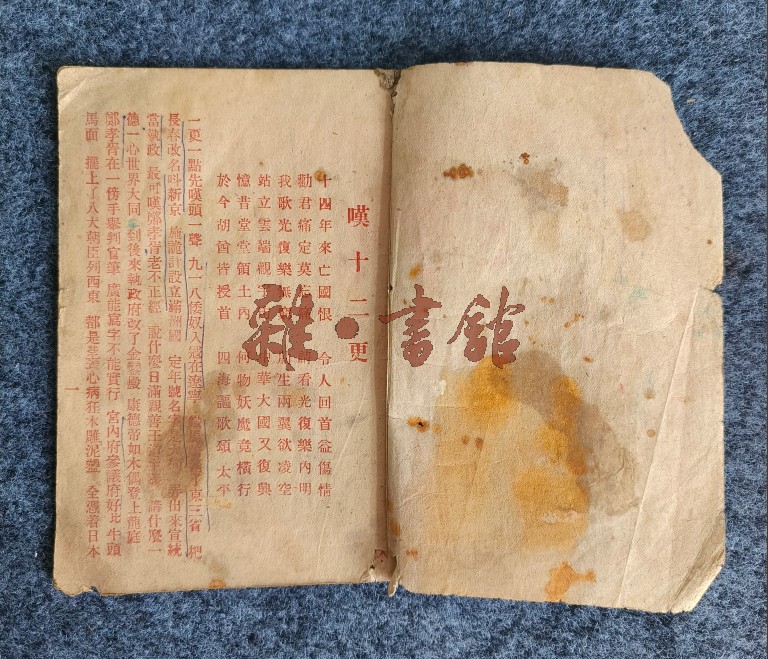 嘆十二更
十四年來亡國恨 令人回首益傷情
勸君痛定莫 看光復樂內明
我歌光復樂無 生兩翼欲凌空
站立雲端觀 華大國又復興
憶昔堂堂領土內 何物妖魔竟橫行
於今胡酋皆授首 四海謳歌頌太平
一更一點先嘆頭一聲 九一八倭奴入寇在遼寧 東三省 把
長春改名叫新京 施詭計設立滿洲國 定年號名 出來宣統
當執政 最可嘆鄭孝胥老不正經 說什麼日滿親善王 講什麼一
德一心世界大同 到後來執政府改了金鑾殿 康德帝如木偶登上龍庭
鄭孝胥在一傍手舉判官筆 廣能寫字不能實行 宮內府參議府好比牛頭
馬面 擺上了八大朝臣列西東 都是 心病狂木雕泥塑 全憑着日本
一
雜·書館